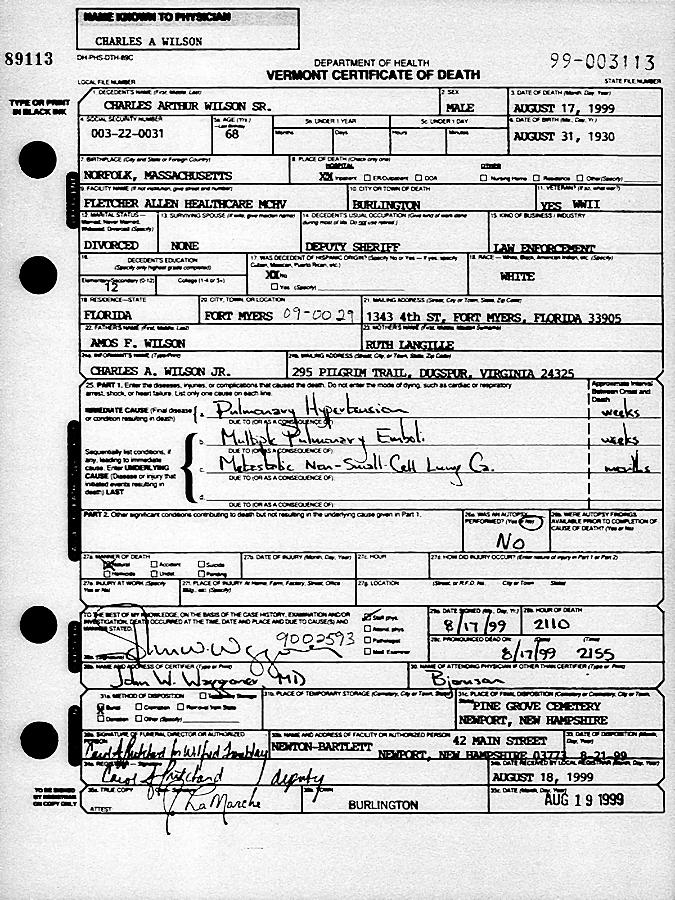 NAME KNOWN TO PHYSICIAN
CHARLES A WILSON
89113
DH-PHS-DTH-89C
DEPARTMENT OF HEALTH
VERMONT CERTIFICATE OF DEATH
99-003113
LOCAL FILE NUMBER
STATE FILE NUMBER
TYPE OR PRINT
IN BLACK INK
1. DECEDENT'S NAME (First, Middle, Last)
CHARLES ARTHUR WILSON SR.
2. SEX
MALE
3. DATE OF DEATH (Month, Day, Year)
AUGUST 17, 1999
4. SOCIAL SECURITY NUMBER
003-22-0031
5a. AGE (Yrs.)
68
5b. UNDER 1 YEAR
Months Days
5c. UNDER 1 DAY
Hours Minutes
6. DATE OF BIRTH (Mo., Day, Yr.)
AUGUST 31, 1930
7. BIRTHPLACE (City and State or Foreign Country)
NORFOLK, MASSACHUSETTS
8. PLACE OF DEATH (Check only one)
HOSPITAL
XX Inpatient ER/Outpatient DOA
OTHER
Nursing Home Residence Other (Specify)
9. FACILITY NAME (If not institution, give street and number)
FLETCHER ALLEN HEALTHCARE MCHV
10. CITY OR TOWN OF DEATH
BURLINGTON
11. VETERAN? (If so, what war?)
YES WWII
12. MARITAL STATUS—
Married, Never Married,
Widowed, Divorced (Specify)
DIVORCED
13. SURVIVING SPOUSE (If wife, give maiden name)
NONE
14. DECEDENT'S USUAL OCCUPATION (Give kind of work done
during most of life. Do not use retired.)
DEPUTY SHERIFF
15. KIND OF BUSINESS / INDUSTRY
LAW ENFORCEMENT
16. DECEDENT'S EDUCATION
(Specify only highest grade completed)
Elementary/Secondary (0-12) College (1-4 or 5+)
12
17. WAS DECEDENT OF HISPANIC ORIGIN? (Specify No or Yes — If yes, specify
Cuban, Mexican, Puerto Rican, etc.)
XX No
Yes (Specify)
18. RACE — White, Black, American Indian, etc. (Specify)
WHITE
19. RESIDENCE—STATE
FLORIDA
20. CITY, TOWN, OR LOCATION
FORT MYERS 09-0029
21. MAILING ADDRESS (Street, City or Town, State, Zip Code)
1343 4th ST, FORT MYERS, FLORIDA 33905
22. FATHER'S NAME (First, Middle, Last)
AMOS F. WILSON
23. MOTHER'S NAME (First, Middle, Maiden Surname)
RUTH LANGILLE
24a. INFORMANT'S NAME (Type/Print)
CHARLES A. WILSON JR.
24b. MAILING ADDRESS (Street, City or Town, State, Zip Code)
295 PILGRIM TRAIL, DUGSPUR, VIRGINIA 24325
25. PART 1. Enter the diseases, injuries, or complications that caused the death. Do not enter the mode of dying, such as cardiac or respiratory
arrest, shock, or heart failure. List only one cause on each line.
Approximate Interval
Between Onset and
Death
IMMEDIATE CAUSE (Final disease
or condition resulting in death)
a. Pulmonary Hypertension weeks
DUE TO (OR AS A CONSEQUENCE OF):
b. Multiple Pulmonary Emboli weeks
DUE TO (OR AS A CONSEQUENCE OF):
Sequentially list conditions, if
any, leading to immediate
cause. Enter UNDERLYING
CAUSE (Disease or injury that
initiated events resulting in
death) LAST
c. Metastatic Non-Small-Cell Lung Ca. months
DUE TO (OR AS A CONSEQUENCE OF):
d.
PART 2. Other significant conditions contributing to death but not resulting in the underlying cause given in Part 1.
26a. WAS AN AUTOPSY
PERFORMED? (Yes or No)
No
26b. WERE AUTOPSY FINDINGS
AVAILABLE PRIOR TO COMPLETION OF
CAUSE OF DEATH? (Yes or No)
27a. MANNER OF DEATH
Natural Accident Suicide
Homicide Undet. Pending
27b. DATE OF INJURY (Month, Day, Year)
27c. HOUR
27d. HOW DID INJURY OCCUR? (Enter nature of injury in Part 1 or Part 2)
27e. INJURY AT WORK (Specify
Yes or No)
27f. PLACE OF INJURY At Home, Farm, Factory, Street, Office
Bldg., etc. (Specify)
27g. LOCATION (Street, or R.F.D. No. City or Town State)
TO THE BEST OF MY KNOWLEDGE, ON THE BASIS OF THE CASE HISTORY, EXAMINATION AND/OR
INVESTIGATION, DEATH OCCURRED AT THE TIME, DATE AND PLACE AND DUE TO CAUSE(S) AND
MANNER STATED.
John W. Waggoner 9002593
Staff phys.
Attend. phys.
Pathologist
Med. Examiner
29a. DATE SIGNED (Mo., Day, Yr.)
8/17/99
29b. HOUR OF DEATH
2110
29c. PRONOUNCED DEAD ON (Date) (Time)
8/17/99 2155
28b. NAME AND ADDRESS OF CERTIFIER (Type or Print)
John W. Waggoner, MD
30. NAME OF ATTENDING PHYSICIAN IF OTHER THAN CERTIFIER (Type or Print)
Bjornson
31a. METHOD OF DISPOSITION Temporary Storage
Burial Cremation Removal from State
Donation Other (Specify)
31b. PLACE OF TEMPORARY STORAGE (Cemetery, City or Town, State)
31c. PLACE OF FINAL DISPOSITION (Cemetery or Crematory, City or Town, State)
PINE GROVE CEMETERY
NEWPORT, NEW HAMPSHIRE
32a. SIGNATURE OF FUNERAL DIRECTOR OR AUTHORIZED
PERSON
Carol A Pritchard for Wilfred
32b. NAME AND ADDRESS OF FACILITY OR AUTHORIZED PERSON
NEWTON-BARTLETT 42 MAIN STREET
NEWPORT, NEW HAMPSHIRE 03773
33. DATE OF DISPOSITION (Month,
Day, Year)
8-21-99
34a. REGISTRAR — Signature
Carol A Pritchard / deputy
34b. DATE RECEIVED BY LOCAL REGISTRAR (Month, Day, Year)
AUGUST 18, 1999
TO BE SIGNED
BY REGISTRAR
ON COPY ONLY
35a. TRUE COPY
ATTEST
J. LaMarche
35b. TOWN
BURLINGTON
35c. DATE (Month, Day, Year)
AUG 19 1999